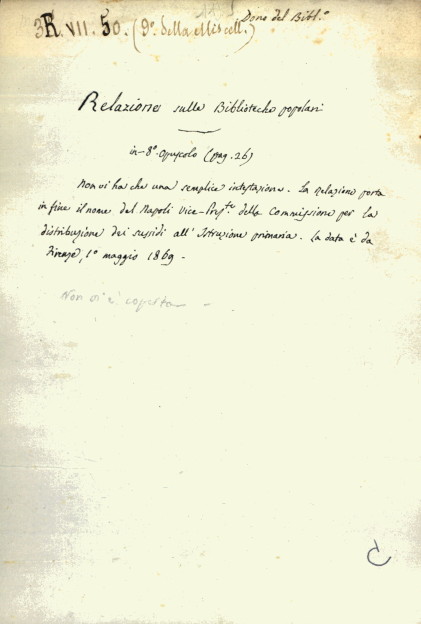 3R. VII. 50. (9º della Miscell.)
Dono del Bibl.º
Relazione sulle Biblioteche popolari
in-8º opuscolo (pag. 26)
Non vi ha che una semplice intestazione. La Relazione porta
in fine il nome del Napoli Vice-Pres.te della Commissione per la
distribuzione dei sussidi all'Istruzione primaria. La data è da
Firenze, 1º maggio 1869 -
Non vi è coperta -